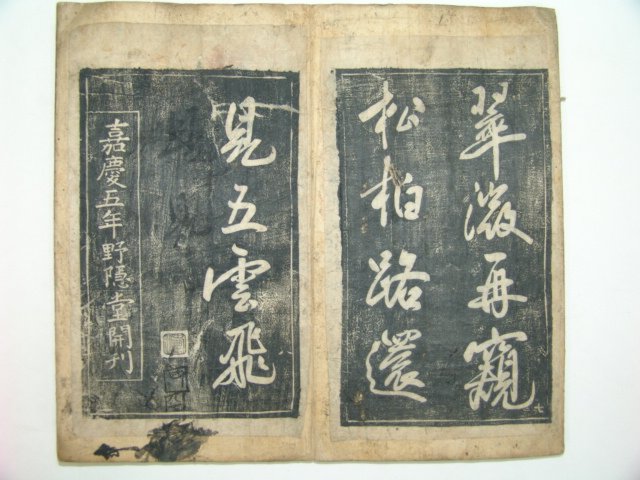 翠微再窺
松柏路還
見五雲飛
嘉慶五年野隱堂開刊
七